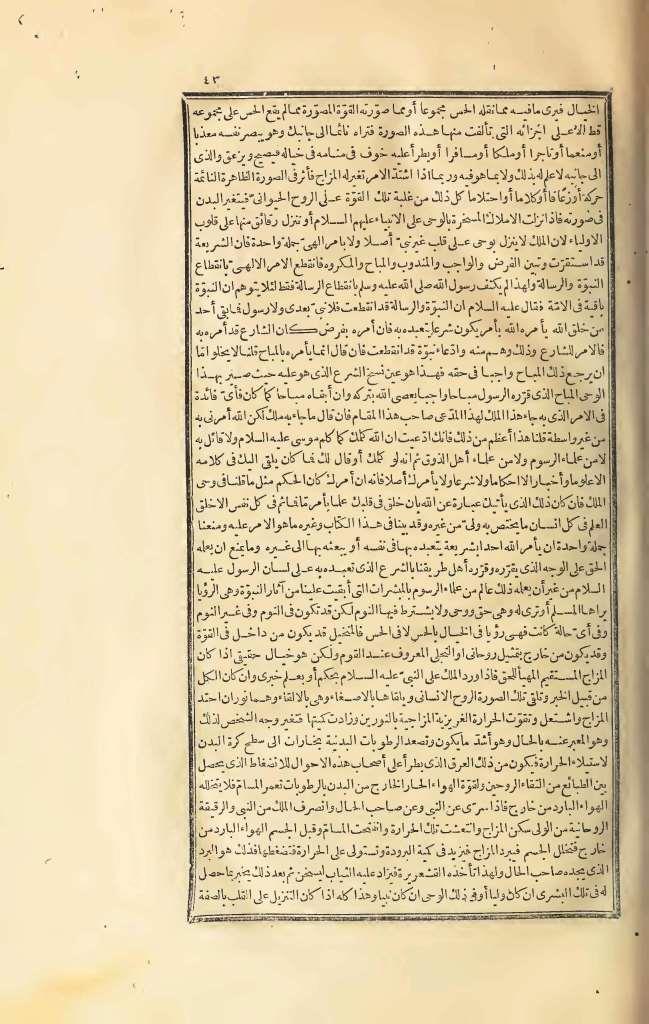 ٤٣
الخيال فيرى ما فيه مما نقله الحس مجموعا أو مما صوّرته القوّة المصوّرة مما لم يقع الحس على مجموعه
قط الا على اجزائه التي تألفت منها هذه الصورة فتراه نائما الى جانبك وهو يبصر نفسه معذبا
أو منعما أو تاجرا أو ملكا أو مسافرا أو يطرأ عليه خوف في منامه في خياله فيصيح ويزعق والذى
الى جانبه لا علم له بذلك ولا بما هو فيه وربما اذا اشتدّ الامر تغير له المزاج فأثر في الصورة الظاهرة النائمة
حركة أو زعقا أو كلاما أو احتلاما كل ذلك من غلبة تلك القوّة على الروح الحيواني فيتغير البدن
في صورته فاذا نزلت الاملاك المسخرة بالوحى على الانبياء عليهم السلام أو تنزل رقائق منها على قلوب
الاولياء لان الملك لا ينزل بوحى على قلب غير نبىّ أصلا ولا بامر الهىّ جملة واحدة فان الشريعة
قد استقرّت وتبين الفرض والواجب والمندوب والمباح والمكروه فانقطع الامر الالهىّ بانقطاع
النبوّة والرسالة ولهذا لم يكتف رسول الله صلى الله عليه وسلم بانقطاع الرسالة فقط لئلا يتوهم ان النبوّة
باقية في الامّة فقال عليه السلام ان النبوّة والرسالة قد انقطعت فلا نبىّ بعدى ولا رسول فما بقى أحد
من خلق الله يأمره الله بأمر يكون شرعا يتعبده به فان أمره بفرض كان الشارع قد أمره به
فالامر للشارع وذلك وهم منه وادّعاء نبوّة قد انقطعت فان قال انما يأمره بالمباح قلنا لا يخلو امّا
ان يرجع ذلك المباح واجبا في حقه فهذا هو عين نسخ الشرع الذى هو عليه حيث صير بهذا
الوحى المباح الذى قرّره الرسول مباحا واجبا يعصى الله بتركه وان أبقاه مباحا كما كان فأىّ فائدة
في الامر الذى به جاء هذا الملك لهذا المدّعى صاحب هذا المقام فان قال ما جاء به ملك لكن الله أمرنى به
من غير واسطة قلنا هذا أعظم من ذلك فانك ادّعيت ان الله كلمك كما كلم موسى عليه السلام ولا قائل به
لا من علماء الرسوم ولا من علماء أهل الذوق ثم انه لو كلمك أو قال لك فما كان يلقى اليك في كلامه
الا علوما وأخبارا لا أحكاما ولا شرعا ولا يأمرك أصلا فانه ان أمرك كان الحكم مثل ما قلنا في وحى
الملك فان كان ذلك الذى يأتيك عبارة عن الله بان خلق في قلبك علما بأمر ما فما ثم في كل نفس الا خلق
العلم في كل انسان ما يختص به ولىّ من غيره وقد بينا في هذا الكتاب وغيره ما هو الامر عليه ومنعنا
جملة واحدة ان يأمر الله احدا بشريعة يتعبده بها في نفسه أو يبعثه بها الى غيره وما يمنع ان يعلمه
الحق على الوجه الذى يقرّره وقرّره أهل طريقنا بالشرع الذى تعبده به على لسان الرسول عليه
السلام من غير أن يعلمه ذلك عالم من علماء الرسوم بالمبشرات التى أبقيت علينا من آثار النبوّة وهى الرؤيا
يراها المسلم أو ترى له وهى حق ووحى ولا يشترط فيها النوم لكن قد تكون في النوم وفي غير النوم
وفي أىّ حالة كانت فهى رؤيا في الخيال بالحس لا في الحس فالمتخيل قد يكون من داخل في القوّة
وقد يكون من خارج بتمثيل روحانى أو التجلى المعروف عند القوم ولكن هو خيال حقيقى اذا كان
المزاج المستقيم المهيأ للحق فاذا ورد الملك على النبىّ عليه السلام بحكم أو بعلم خبرى وان كان الكل
من قبيل الخبر وتلقى تلك الصورة الروح الانسانى وتلقاها بالاصغاء وهى بالالقاء وهما نوران احتد
المزاج واشتعل وتقوّت الحرارة الغريزية المزاجية بالنورين وزادت كميتها فتغير وجه الشخص لذلك
وهو المعبر عنه بالحال وهو أشدّ ما يكون وتصعد الرطوبات البدنية بخارات الى سطح كرة البدن
لاستيلاء الحرارة فيكون من ذلك العرق الذى يطرأ على أصحاب هذه الاحوال للانضغاط الذى يحصل
بين الطبائع من التقاء الروحين ولقوة الهواء الحار الخارج من البدن بالرطوبات تغمر المسامّ فلا يتخلله
الهواء البارد من خارج فاذا سرّى عن النبى وعن صاحب الحال وانصرف الملك من النبى والرقيقة
الروحانية من الولى سكن المزاج وانتعشت تلك الحرارة وانفتحت المسامّ وقبل الجسم الهواء البارد من
خارج فتخلل الجسم فيبرد المزاج فيزيد في كمية البرودة وتستولى على الحرارة فتضغطها فذلك هو البرد
الذى يجده صاحب الحال ولهذا تأخذه القشعريرة فيزاد عليه الثياب ليسخن ثم بعد ذلك يخبر بما حصل
له في تلك البشرى ان كان وليا أو في ذلك الوحى ان كان نبيا وهذا كله اذا كان التنزيل على القلب بالصفة